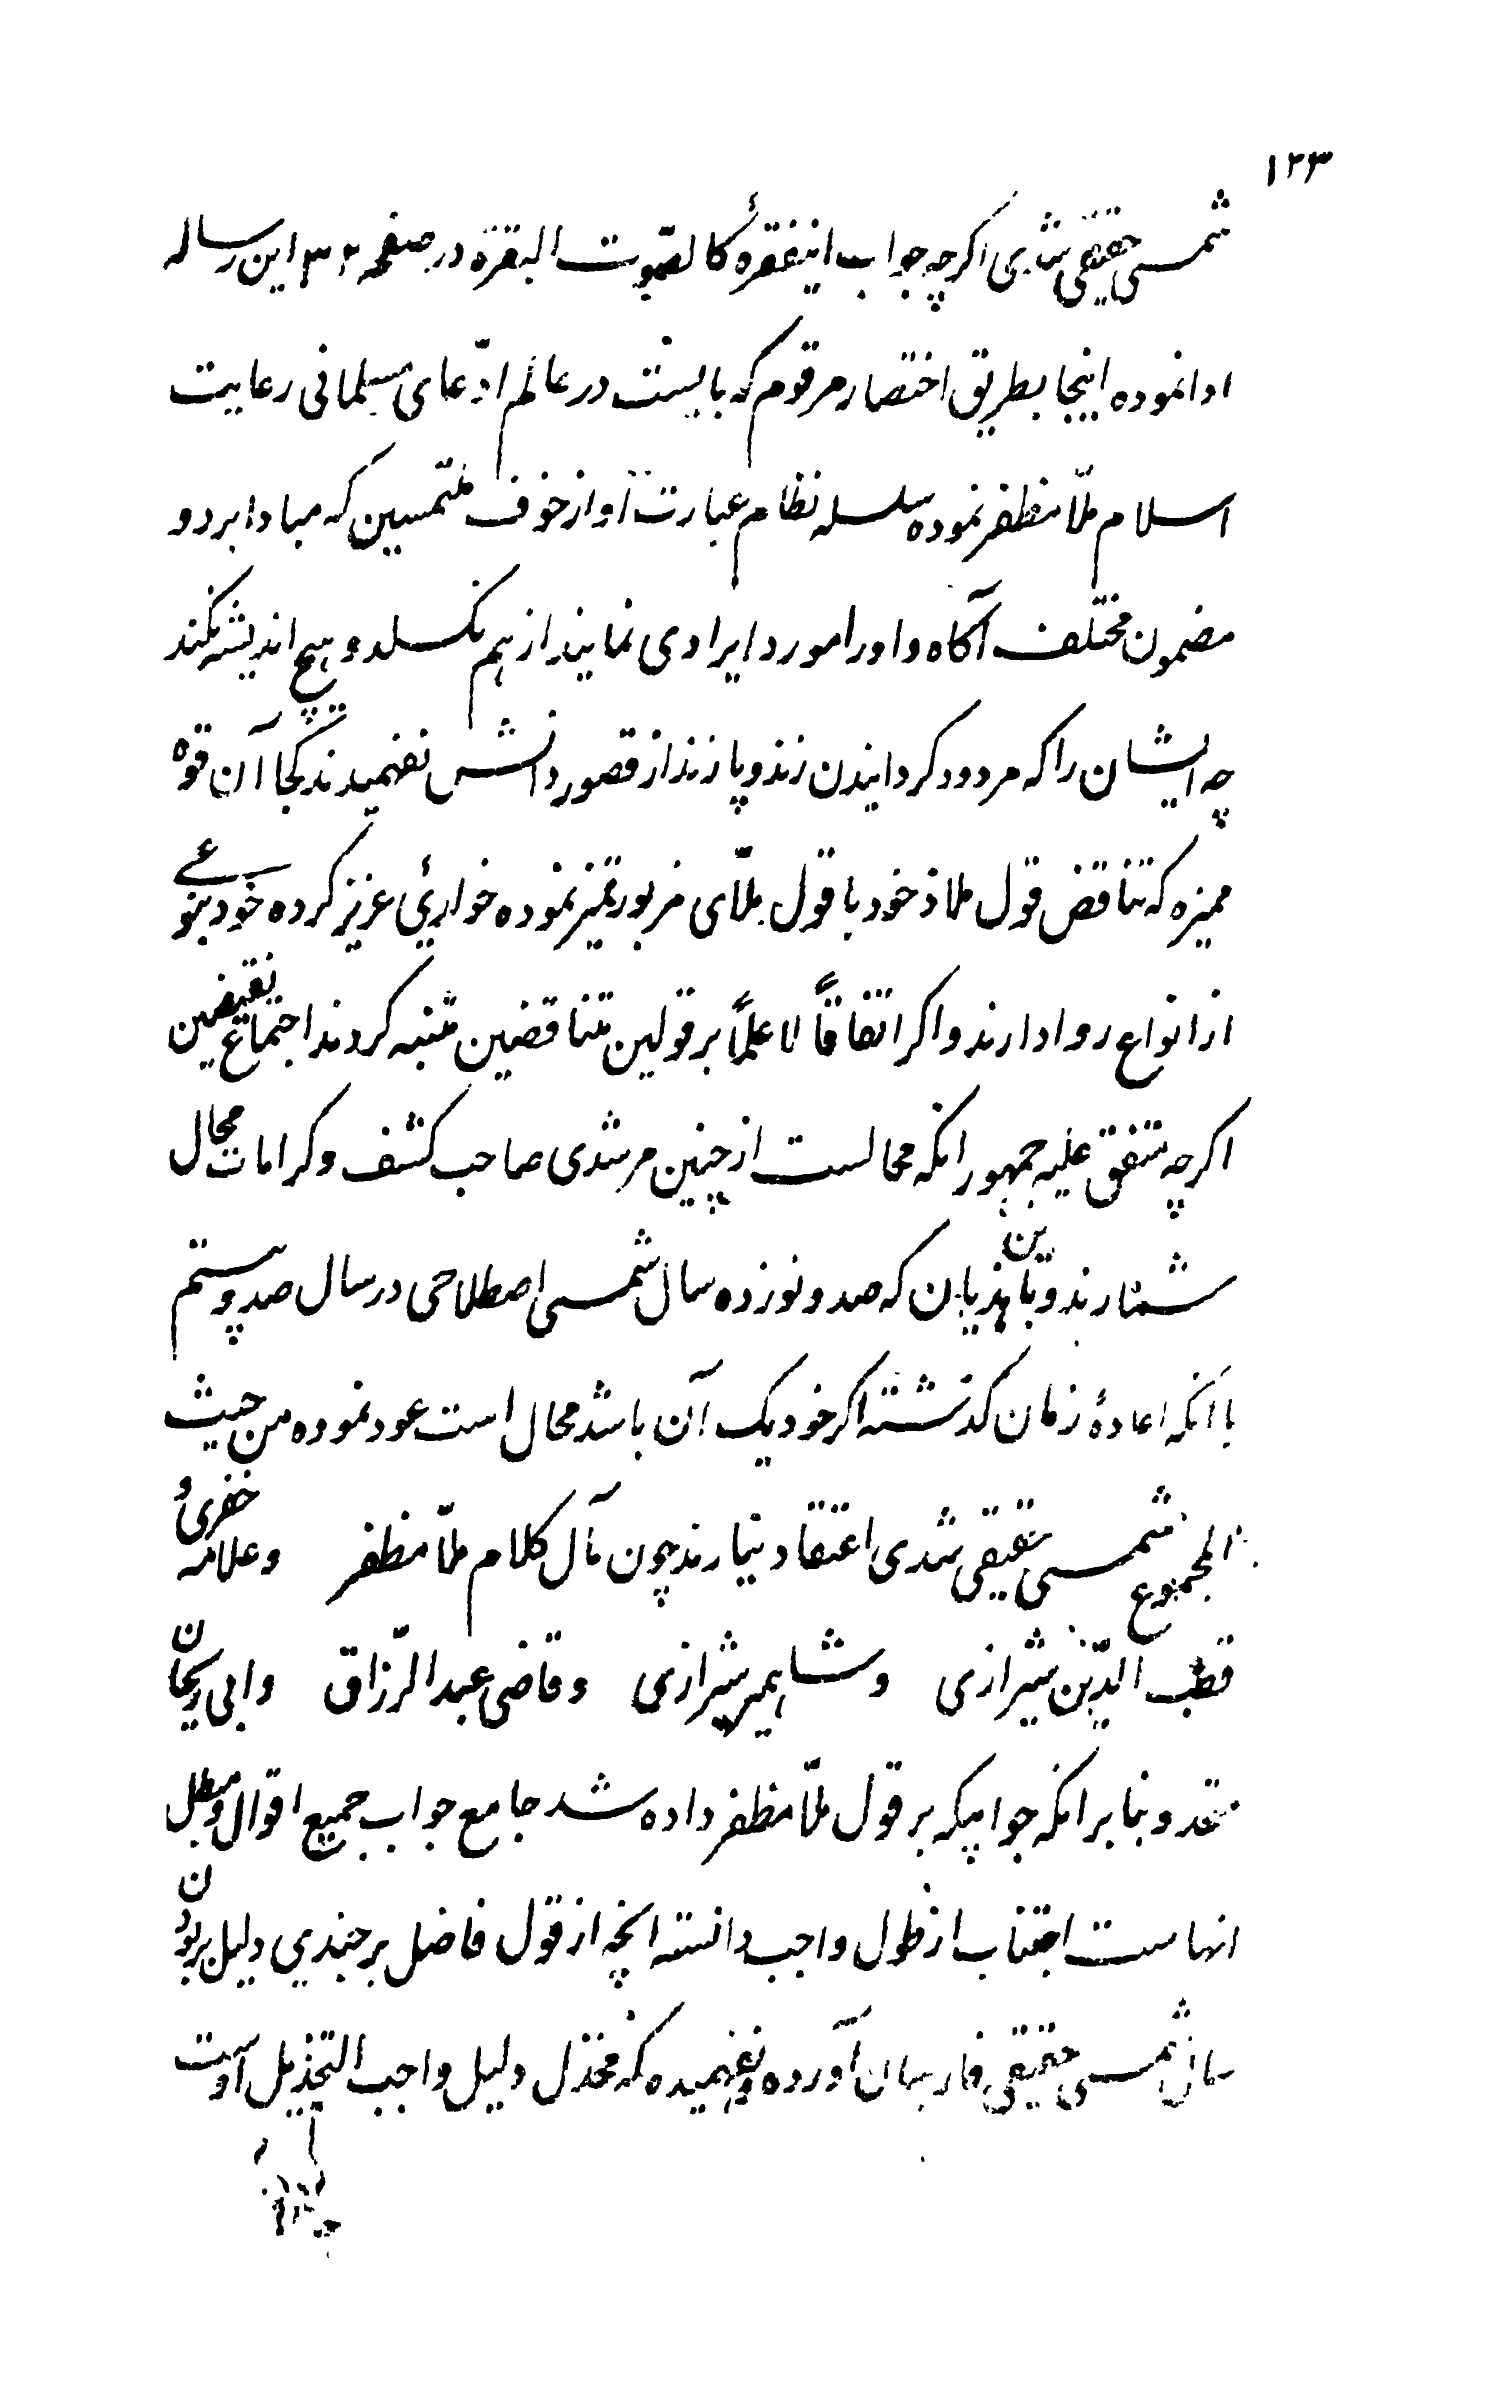 ۱۲۳
شمسی حقیقی شدی اگرچه جواب اینفقرهٔ کالصّوت البقرة در صفحه ۳۲ این رساله
ادا نموده اینجا بطریق اختصار مرقوم که بایست در عالم ادّعای مسلمانی رعایت
اسلام ملّا مظفر نموده سلسله نظام عبارت او از خوف ملتمسین که مبادا بر دو
مضمون مختلف آگاه و او را مورد ایرادی نمایند از هم نگسلد و هیچ اندیشه نکند
چه ایشان را که مردود گردانیدن زند و پازند از قصور دانش نفهمیدند کجا آن قوه
ممیزه که تناقض قول ملاذ خود با قول ملّای مزبور تمیز نموده خواریٔ عزیز کرده خود بنوعی
از انواع روا دارند و اگر اتفاقاً لا علماً بر قولین متناقضین متنبه گردند اجتماع نقیضین
اگرچه متفق علیه جمهور انکه محالست از چنین مرشدی صاحب کشف و کرامات محال
شمارند و باین هذیان که صد و نوزده سال شمسی اصطلاحی در سال صد و بیستم
با آنکه اعادهٔ زمان گذشته اگر خود یک آن باشد محال است عود نموده من حیث
المجموع شمسی حقیقی شدی اعتقاد نیارند چون مآل کلام ملّا مظفر و علامه خفری و
قطب الدّین شیرازی و شاهمیر شیرازی و قاضی عبد الرّزاق و ابی ریحان
متحد و بنا برانکه جوابیکه بر قول ملّا مظفر داده شد جامع جواب جمیع اقوال و مبطل
انهاست اجتناب از طول واجب دانسته انچه از قول فاضل برجندی دلیل بر بودن
سال شمسی حقیقی فارسیان آورده و نفهمیده که مخذل دلیل واجب التخذیل اوست